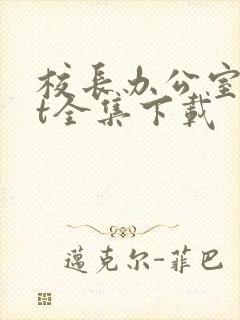 校长办公室
t全集下载
邁克尔-菲巴